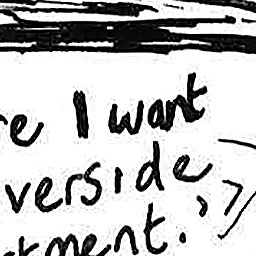 re I want
verside
tment.”